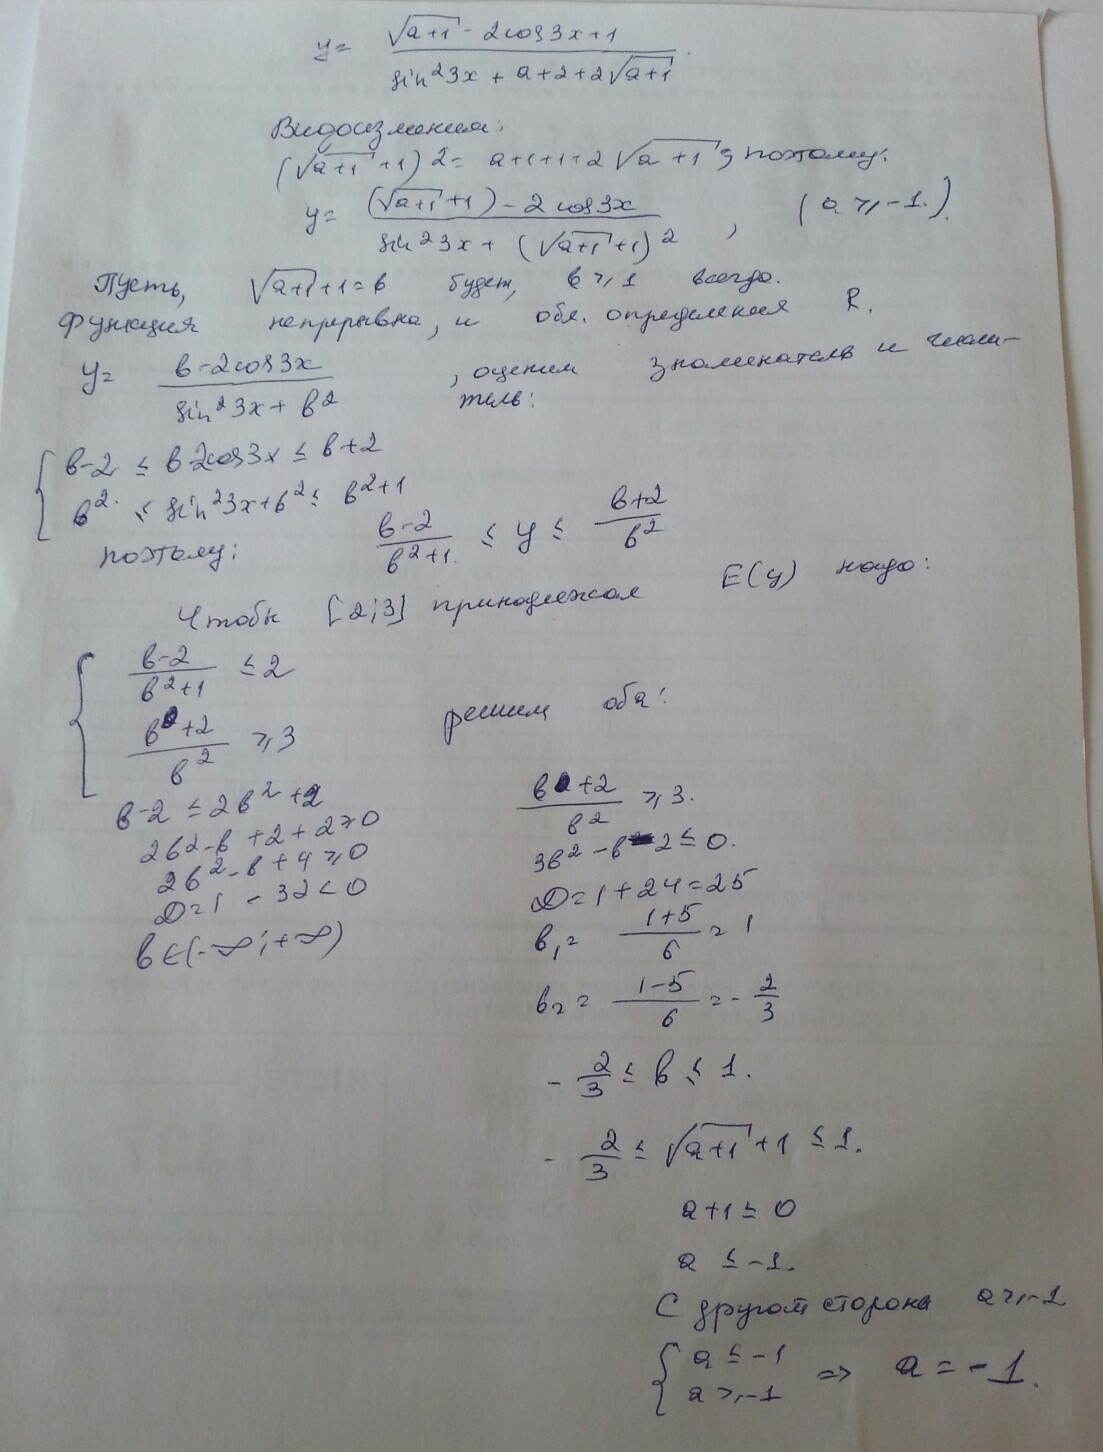 y= (√(a+1) - 2cos3x+1)/(sin²3x + a+2+2√(a+1))
Видоизменим:
(√(a+1)+1)² = a+1+1+2√(a+1); поэтому:
y= ((√(a+1)+1)-2cos3x)/(sin²3x+(√(a+1)+1)²), (a≥-1.)
Пусть, √(a+1)+1=в будет, в≥1 всегда.
Функция непрерывна, и обл. определения R.
y= (в-2cos3x)/(sin²3x+в²), оценим знаменатель и числи-
тель:
{ в-2 ≤ в-2cos3x ≤ в+2
в² ≤ sin²3x+в² ≤ в²+1
поэтому: (в-2)/(в²+1) ≤ y ≤ (в+2)/в²
Чтобы [2;3] принадлежал E(y) надо:
{ (в-2)/(в²+1) ≤ 2
(в+2)/в² ≥ 3
решим оба:
в-2 ≤ 2в²+2
2в²-в+2+2≥0
2в²-в+4≥0
D=1-32<0
в∈(-∞;+∞)
(в+2)/в² ≥ 3.
3в²-в-2≤0.
D=1+24=25
в₁= (1+5)/6 = 1
в₂= (1-5)/6 = -2/3
-2/3 ≤ в ≤ 1.
-2/3 ≤ √(a+1)+1 ≤ 1.
a+1≤0
a ≤ -1.
С другой стороны a≥-1
{ a ≤ -1
a ≥ -1 => a = -1.